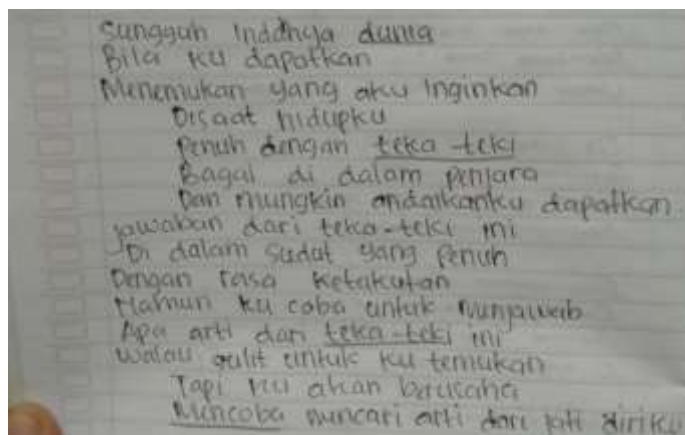 Sungguh Inddhya dunia
Bila ku dapatkan
Menemukan yang aku Inginkan
Disaat hidupku
Penuh dengan teka-teki
Bagai di dalam penjara
Dan mungkin andaikanku dapatkan
jawaban dari teka-teki ini
Di dalam sudut yang penuh
Dengan rasa ketakutan
Namun ku coba untuk menjawab
Apa arti dari teka-teki ini
Walau sulit untuk ku temukan
Tapi ku akan berusaha
Mencoba mencari arti dari jati diriku